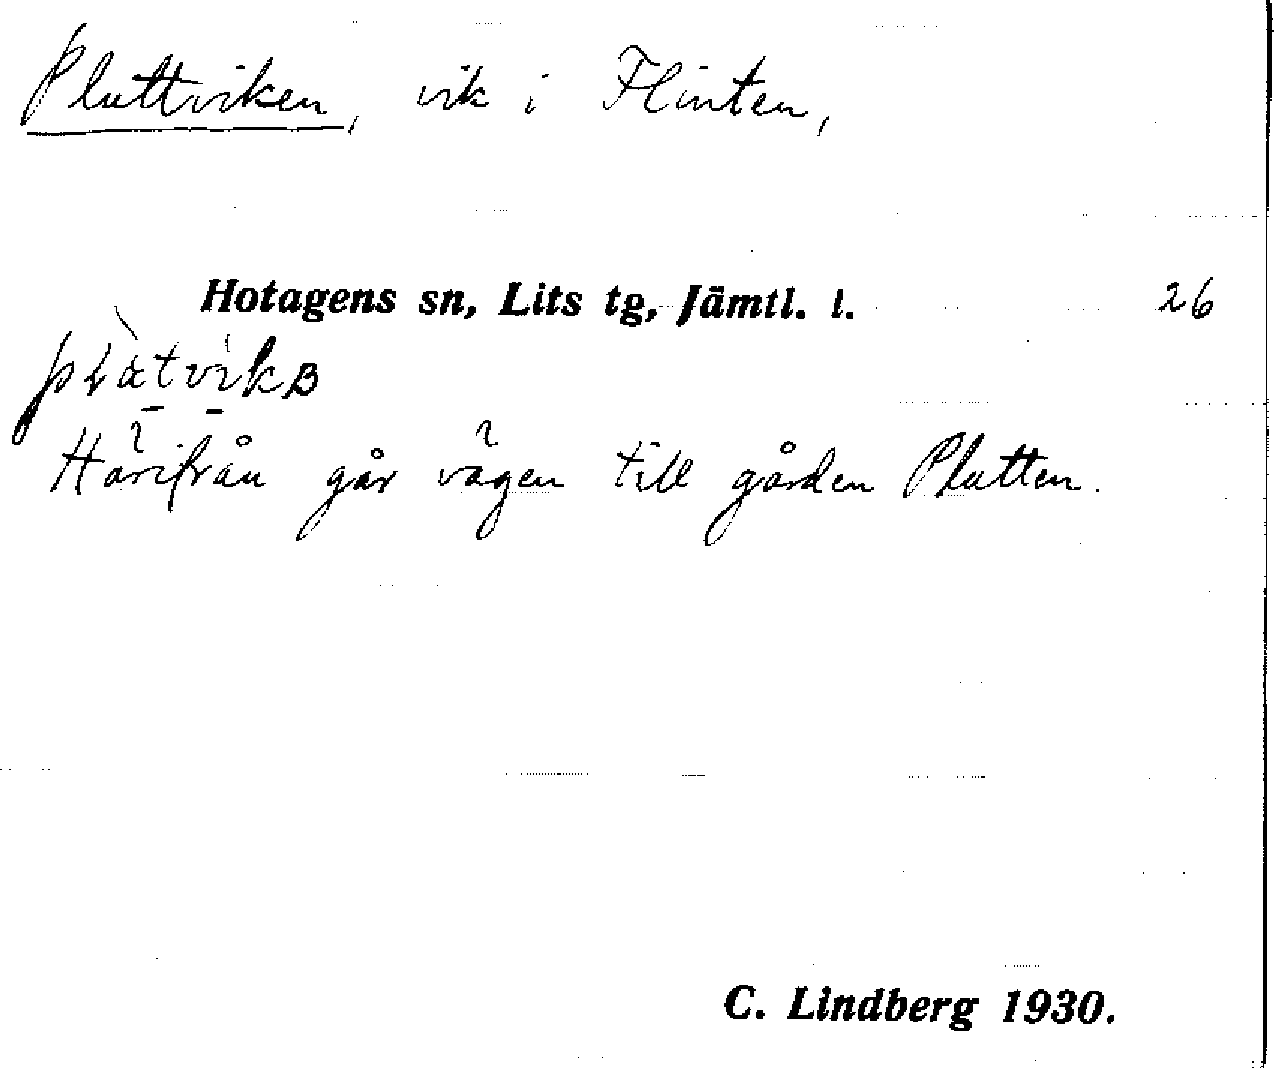 Pluttviken, vik i Flinten,
Hotagens sn, Lits tg, Jämtl. l. 26
Härifrån går vägen till gården Plutten.
C. Lindberg 1930.